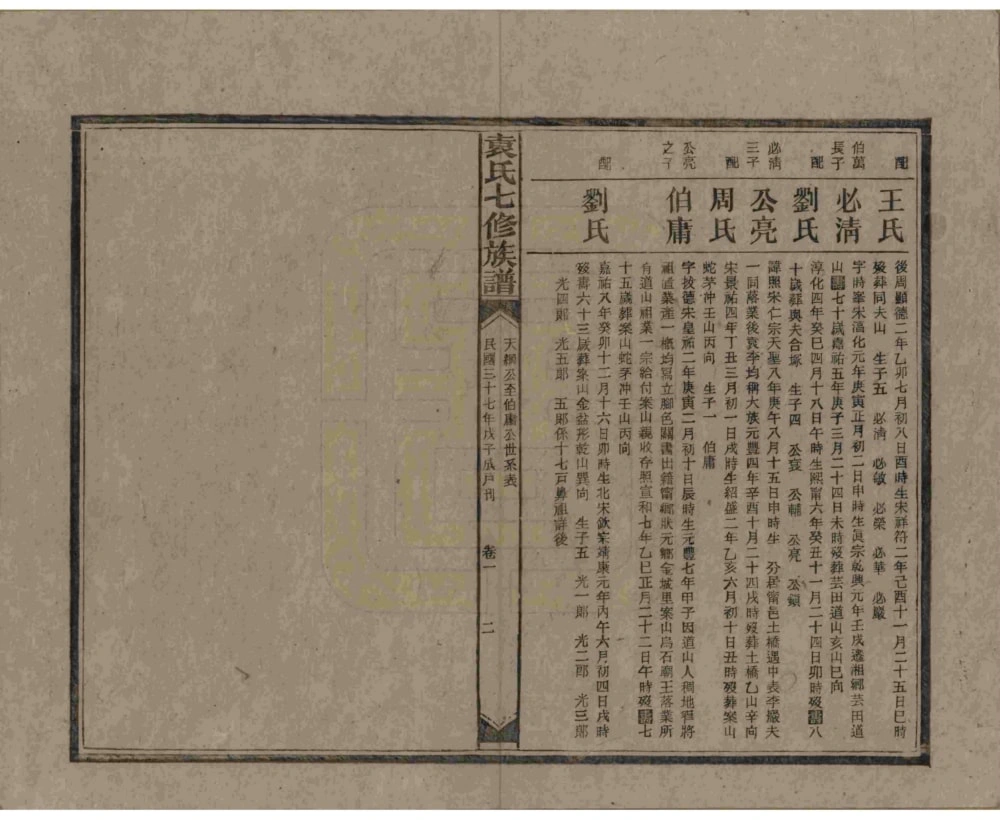 配
王氏
後周顯德二年乙卯七月初八日酉時生宋祥符二年己酉十一月二十五日巳時
歿葬同夫山 生子五 必清 必敏 必榮 必華 必嚴
伯萬
長子
必清
字時峯宋高化元年庚寅正月初二日申時生眞宗乾興元年壬戌遷湘鄉芸田道
山壽七十歲嘉祐五年庚子三月二十四日未時歿葬芸田道山亥山巳向
配
劉氏
淳化四年癸巳四月十八日午時生熙甯六年癸丑十一月二十四日卯時歿壽八
十歲葬與夫合塚 生子四 公寔 公輔 公亮 公鎮
必清
三子
公亮
諱熙宋仁宗天聖八年庚午八月十五日申時生 分居甯邑土橋遇中表李嚴夫
一同落業後袁李均稱大族元豐四年辛酉十月二十四戌時歿葬土橋乙山辛向
配
周氏
宋景祐四年丁丑三月初一日戌時生紹盛二年乙亥六月初十日丑時歿葬案山
蛇茅冲壬山丙向 生子一 伯庸
公亮
之子
伯庸
字按德宋皇祐二年庚寅二月初十日辰時生元豐七年甲子因道山人稠地窄將
祖遺業產一概均寫立腳色關書出籍甯鄉狀元鄉金城里案山烏石廟王落業所
有道山祖業一宗給付案山親收存照宣和七年乙巳正月二十二日午時歿壽七
十五歲葬案山蛇茅冲壬山丙向
配
劉氏
嘉祐八年癸卯十二月十六日卯時生北宋欽宗靖康元年丙午六月初四日戌時
歿壽六十三歲葬案山金盆形乾山巽向 生子五 光一郎 光二郎 光三郎
光四郎 光五郎 五郎係十七戸鼻祖詳後
袁氏七修族譜
天撰公至伯庸公世系表
民國三十七年戊子成戸刊
卷一
二